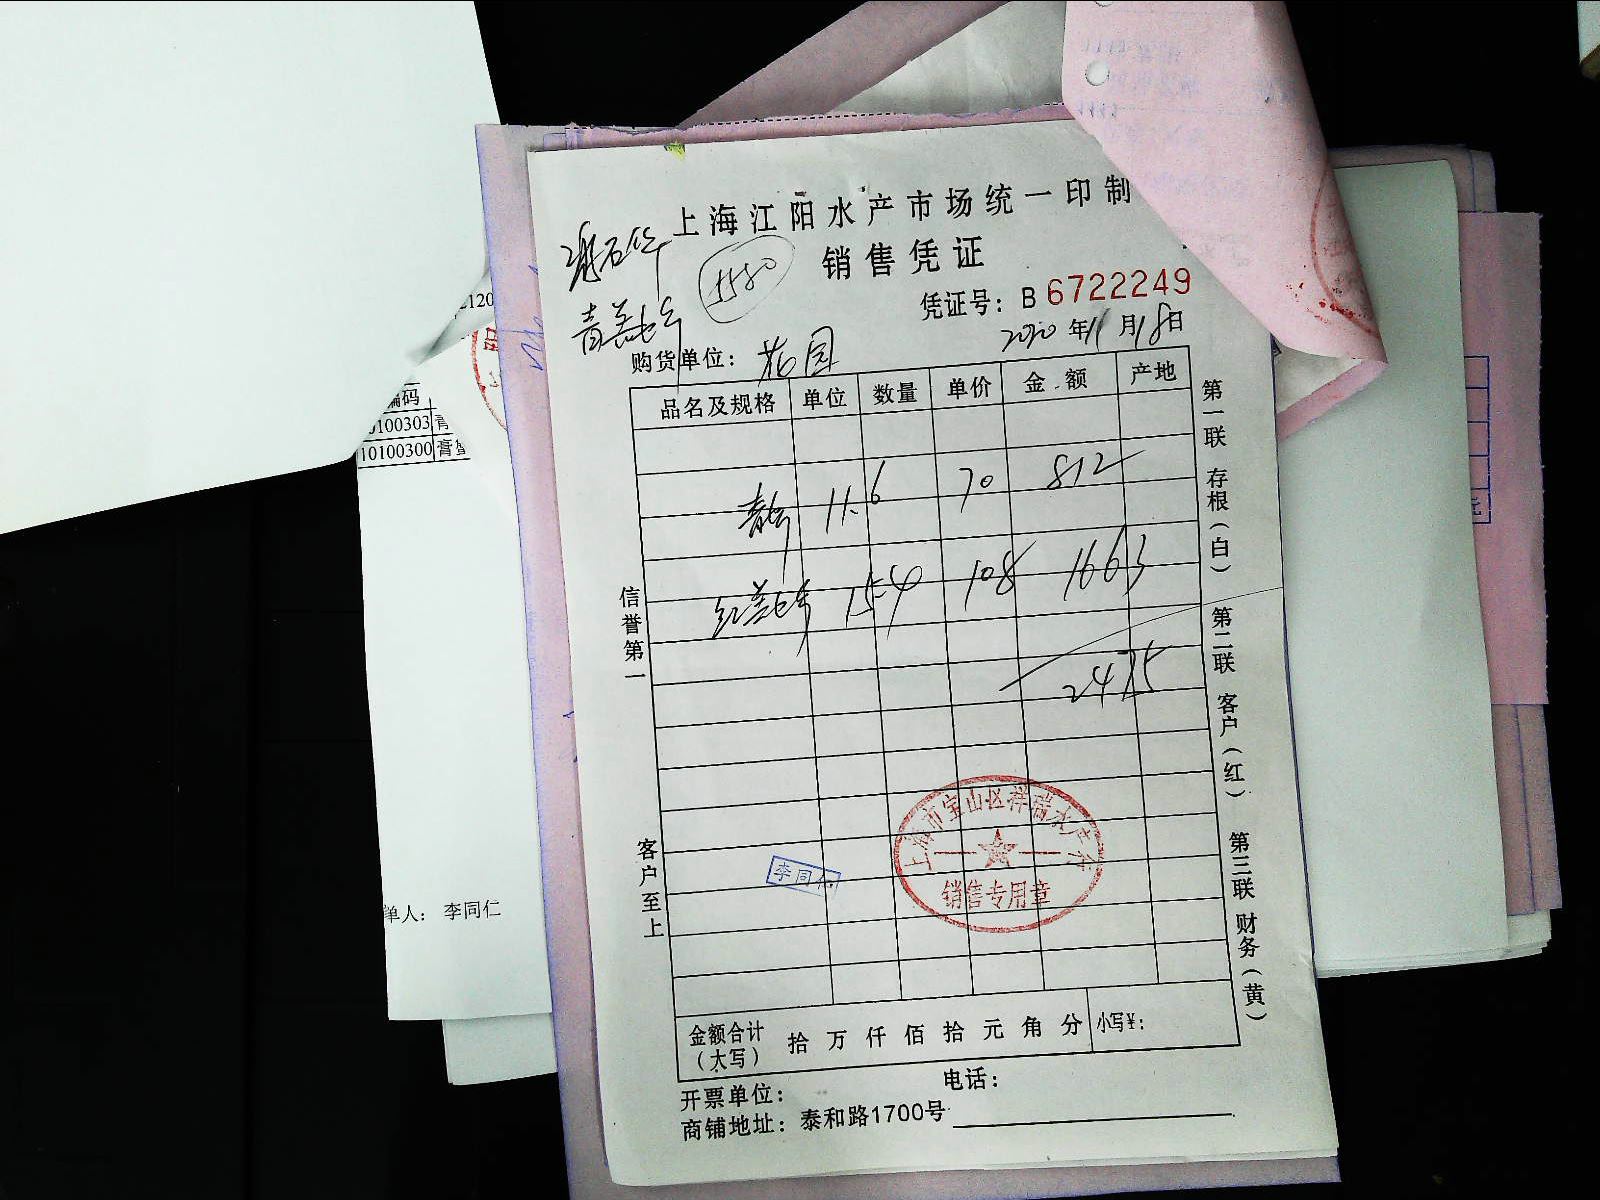 上海江阳水产市场统一印制
销售凭证
凭证号：B 6722249
1580
2020年11月18日
购货单位：花园
品名及规格 单位 数量 单价 金额 产地
11.6 70 812
红羔 15.4 108 1663
2475
信誉第一
客户至上
第一联 存根（白） 第二联 客户（红） 第三联 财务（黄）
上海市宝山区祥瑞水产行
销售专用章
李同仁
金额合计（大写） 拾 万 仟 佰 拾 元 角 分 小写¥：
开票单位： 电话：
商铺地址：泰和路1700号
编码
0100303 青
10100300 膏蟹
单人： 李同仁